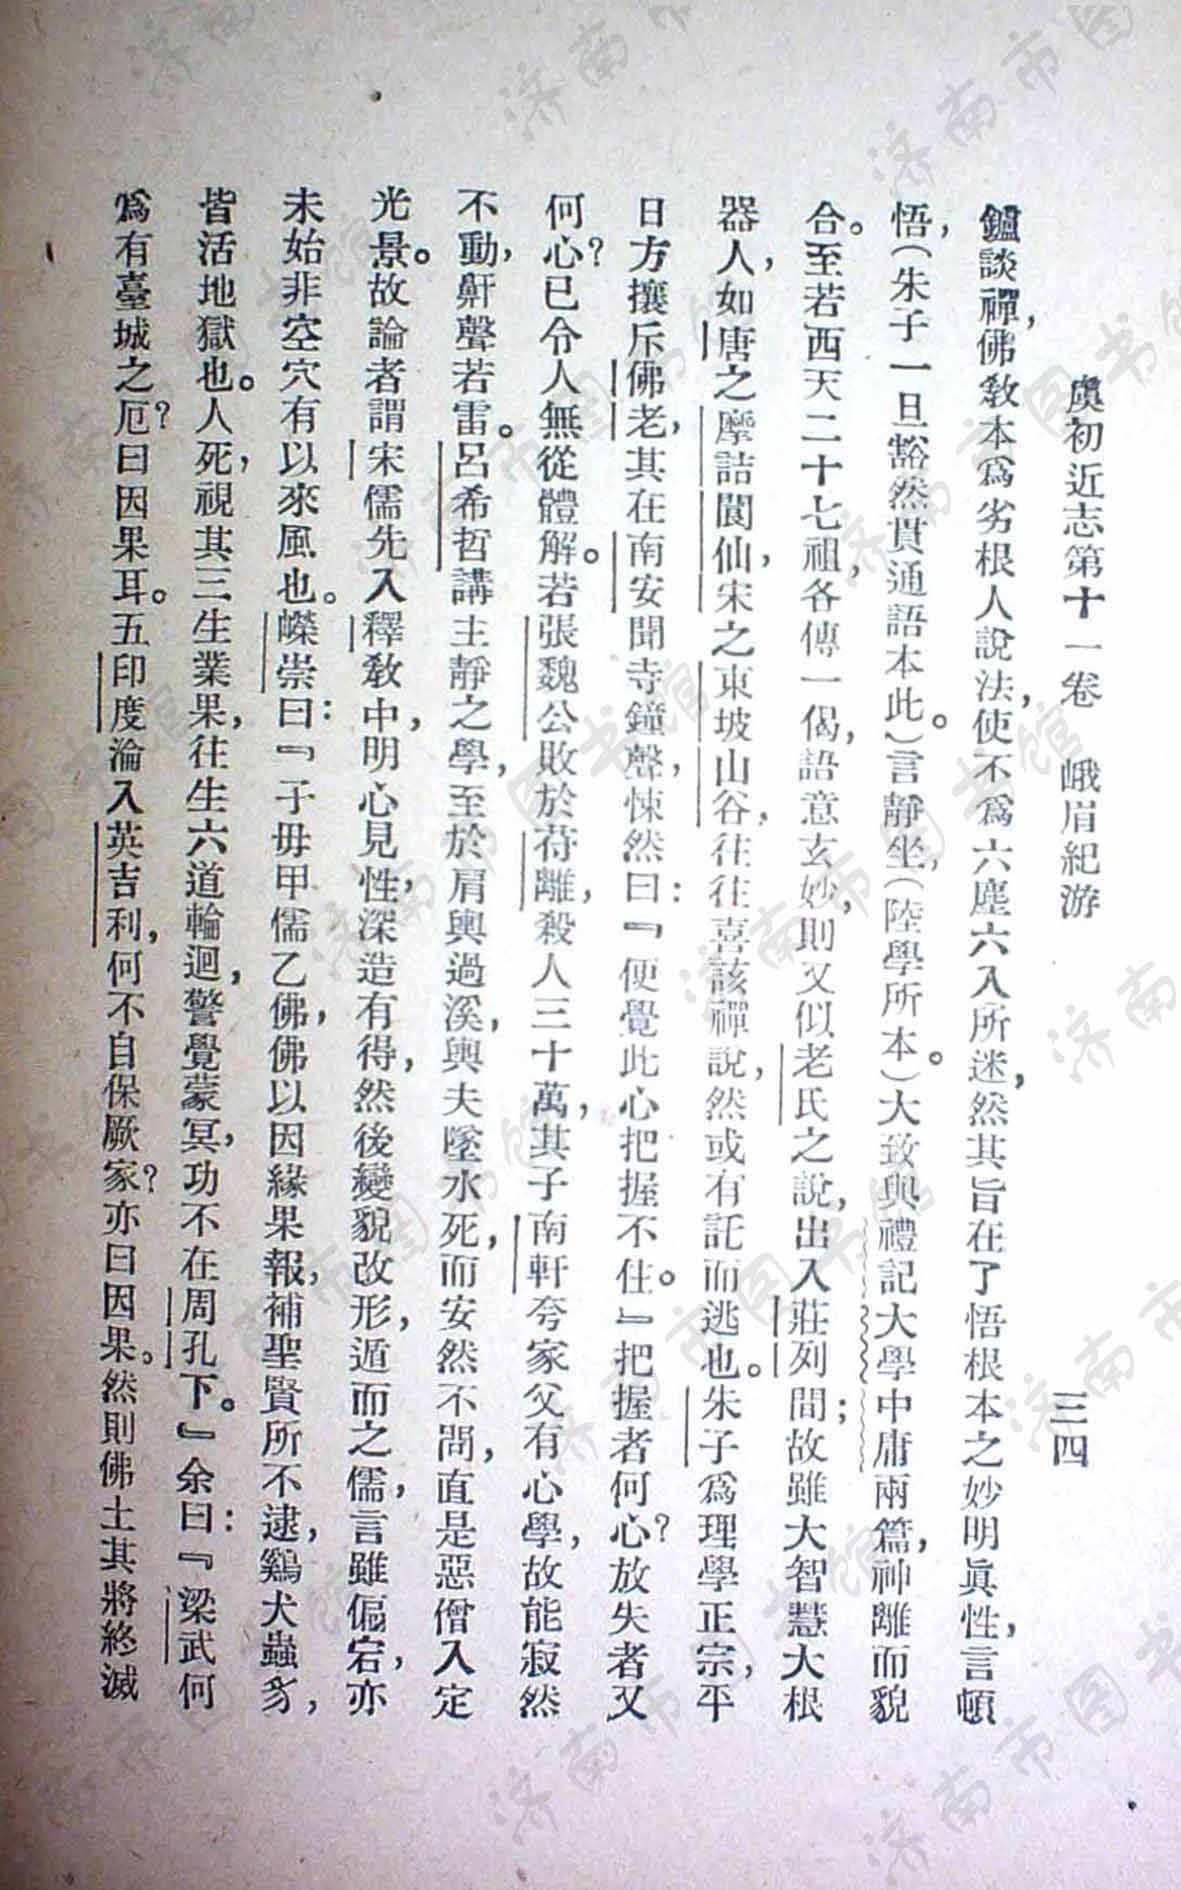 虞初近志第十一卷　峨眉紀游　三四
鑪談禪，佛敎本爲劣根人說法，使不爲六塵六入所迷，然其旨在了悟根本之妙明眞性，言頓
悟，（朱子一旦豁然貫通語本此。）言靜坐，（陸學所本。）大致與禮記大學中庸兩篇，神離而貌
合。至若西天二十七祖，各傳一偈，語意玄妙，則又似老氏之說，出入莊列間；故雖大智慧大根
器人，如唐之摩詰閬仙，宋之東坡山谷，往往喜該禪說，然或有託而逃也。朱子爲理學正宗，平
日方攘斥佛老，其在南安聞寺鐘聲，悚然曰：『便覺此心把握不住。』把握者何心？放失者又
何心？已令人無從體解。若張魏公敗於苻離，殺人三十萬，其子南軒夸家父有心學，故能寂然
不動，鼾聲若雷。呂希哲講主靜之學，至於肩輿過溪，輿夫墜水死，而安然不問，直是惡僧入定
光景。故論者謂宋儒先入釋敎中，明心見性，深造有得，然後變貌改形，遁而之儒，言雖傴宕，亦
未始非空穴有以來風也。嶸崇曰：『子毋甲儒乙佛，佛以因緣果報，補聖賢所不逮，鷄犬蟲豸，
皆活地獄也。人死，視其三生業果，往生六道輪迴，警覺蒙冥，功不在周孔下。』余曰：『梁武何
爲有臺城之厄？曰因果耳。五印度淪入英吉利，何不自保厥家？亦曰因果。然則佛土其將終滅
济南市图书馆